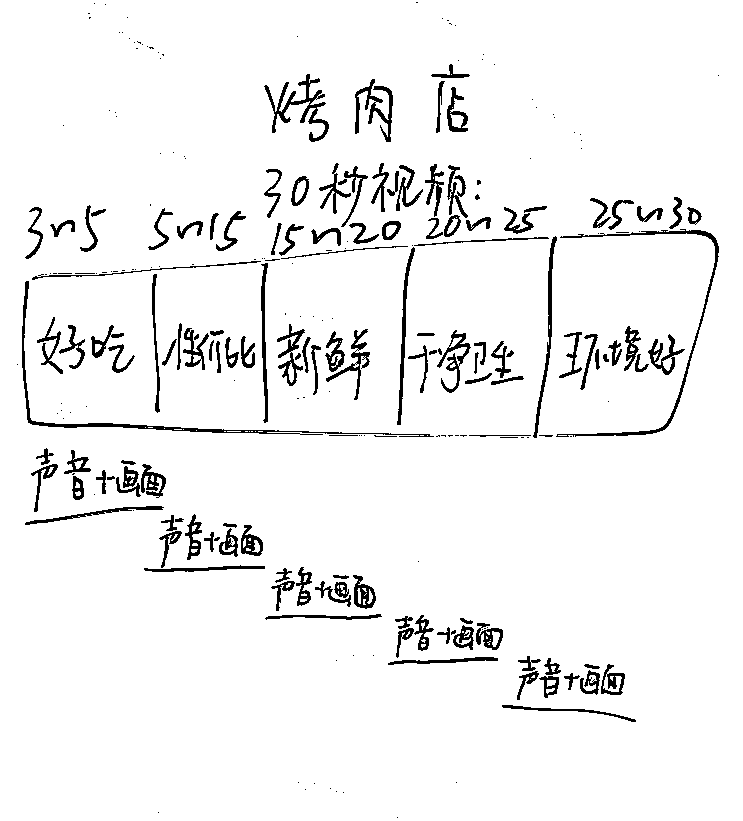 烤肉店
30秒视频:
3~5 5~15 15~20 20~25 25~30
好吃 性价比 新鲜 干净卫生 环境好
声音+画面
声音+画面
声音+画面
声音+画面
声音+画面